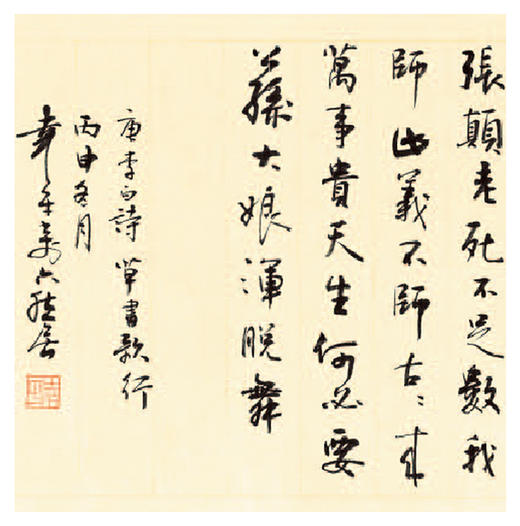 張顛老死不足數我
師此義不師古〻来
萬事貴天生何必要
公孫大娘渾脱舞
唐李白詩草書歌行
丙申冬月